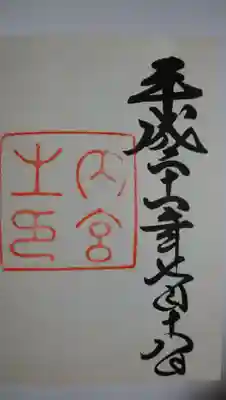 平成二十六年七月十八日
内宮
之印